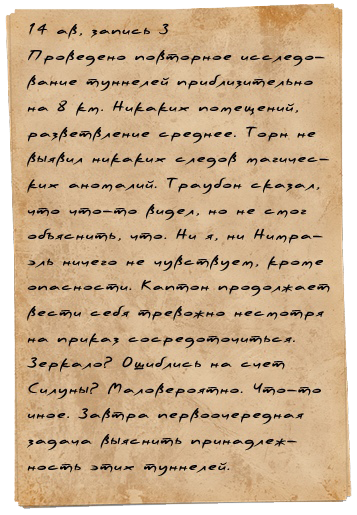 14 ав, запись 3
Проведено повторное исследо-
вание туннелей приблизительно
на 8 км. Никаких помещений,
разветвление среднее. Торн не
выявил никаких следов магичес-
ких аномалий. Траубон сказал,
что что-то видел, но не смог
объяснить, что. Ни я, ни Нимра-
эль ничего не чувствуем, кроме
опасности. Каптон продолжает
вести себя тревожно несмотря
на приказ сосредоточиться.
Зеркало? Ошиблись на счет
Силуны? Маловероятно. Что-то
иное. Завтра первоочередная
задача выяснить принадлеж-
ность этих туннелей.